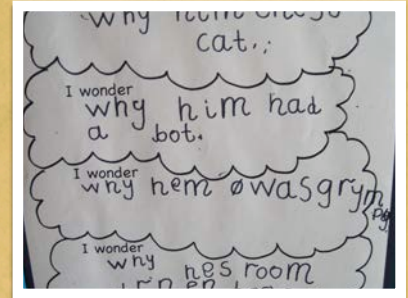 why him
cat.
I wonder
why him had
a bot.
I wonder
why hem was grym
I wonder
why hes room